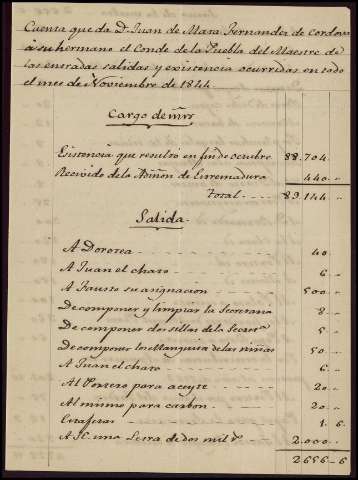 Cuenta que da D. Juan de Mata Fernandez de Cordova
à su hermano el Conde de la Puebla del Maestre de
las entradas salidas y existencia ocurridas en todo
el mes de Noviembre de 1844.
Cargo de mrs
Existencia que resultó en fin de octubre 88.704
Recivido de la Admon de Extremadura 440 "
Total 89.144 "
Salida
A Dorotea 40
A Juan el charo 6 "
A Fausto su asignacion 500 "
De componer y limpiar la Secretaria 8 "
De componer dos sillas de la Secreta 5 "
De componer los de las niñas 50 "
A Juan el charo 6 "
Al Portero para aceyte 20 "
Al mismo para carbon 20 "
1 6
una Letra de dos mil r 2.000
2656 6